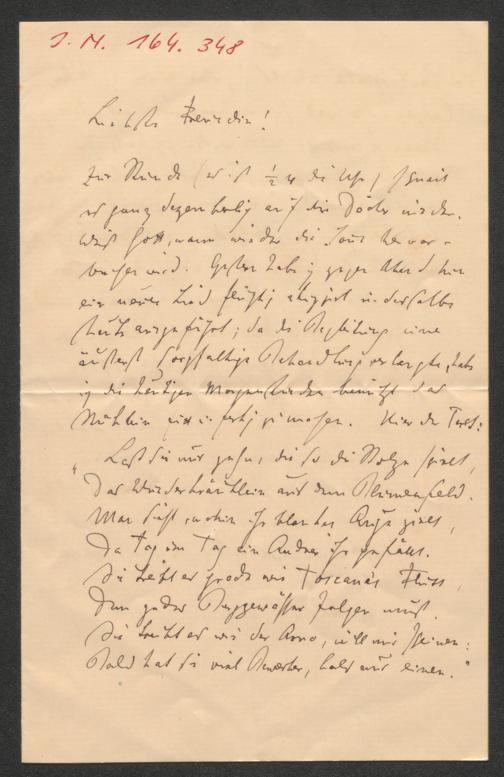 J. N. 164.348
Liebste Freundin!
Zur Stunde (es ist ½ 4 die Uhr) schneit
es ganz dezemberlich auf die Dächer nieder.
Weiß Gott, wann wieder die Sonne hervor-
kommen wird. Gestern habe ich gegen Abend hier
ein neues Lied flüchtig skizzirt u. dasselbe
heute ausgeführt; da die Begleitung eine
äußerst sorgfältige Behandlung verlangte, habe
ich die heutigen Morgenstunden benützt das
Stücklein fix u. fertig zu machen. Hier der Text:
"Laß sie nur gehn, die so die Stolze spielt,
Das Wunderkräutlein aus dem Blumenfeld.
Man sieht, wohin ihr blankes Auge zielt,
Da Tag um Tag ein Andrer ihr gefällt.
Sie treibt es grade wie Toscana's Fluss,
Dem jedes Berggewässer folgen muß.
Sie treibt es wie der Arno, will mir scheinen:
Bald hat sie viel Bewerber, bald nur einen."